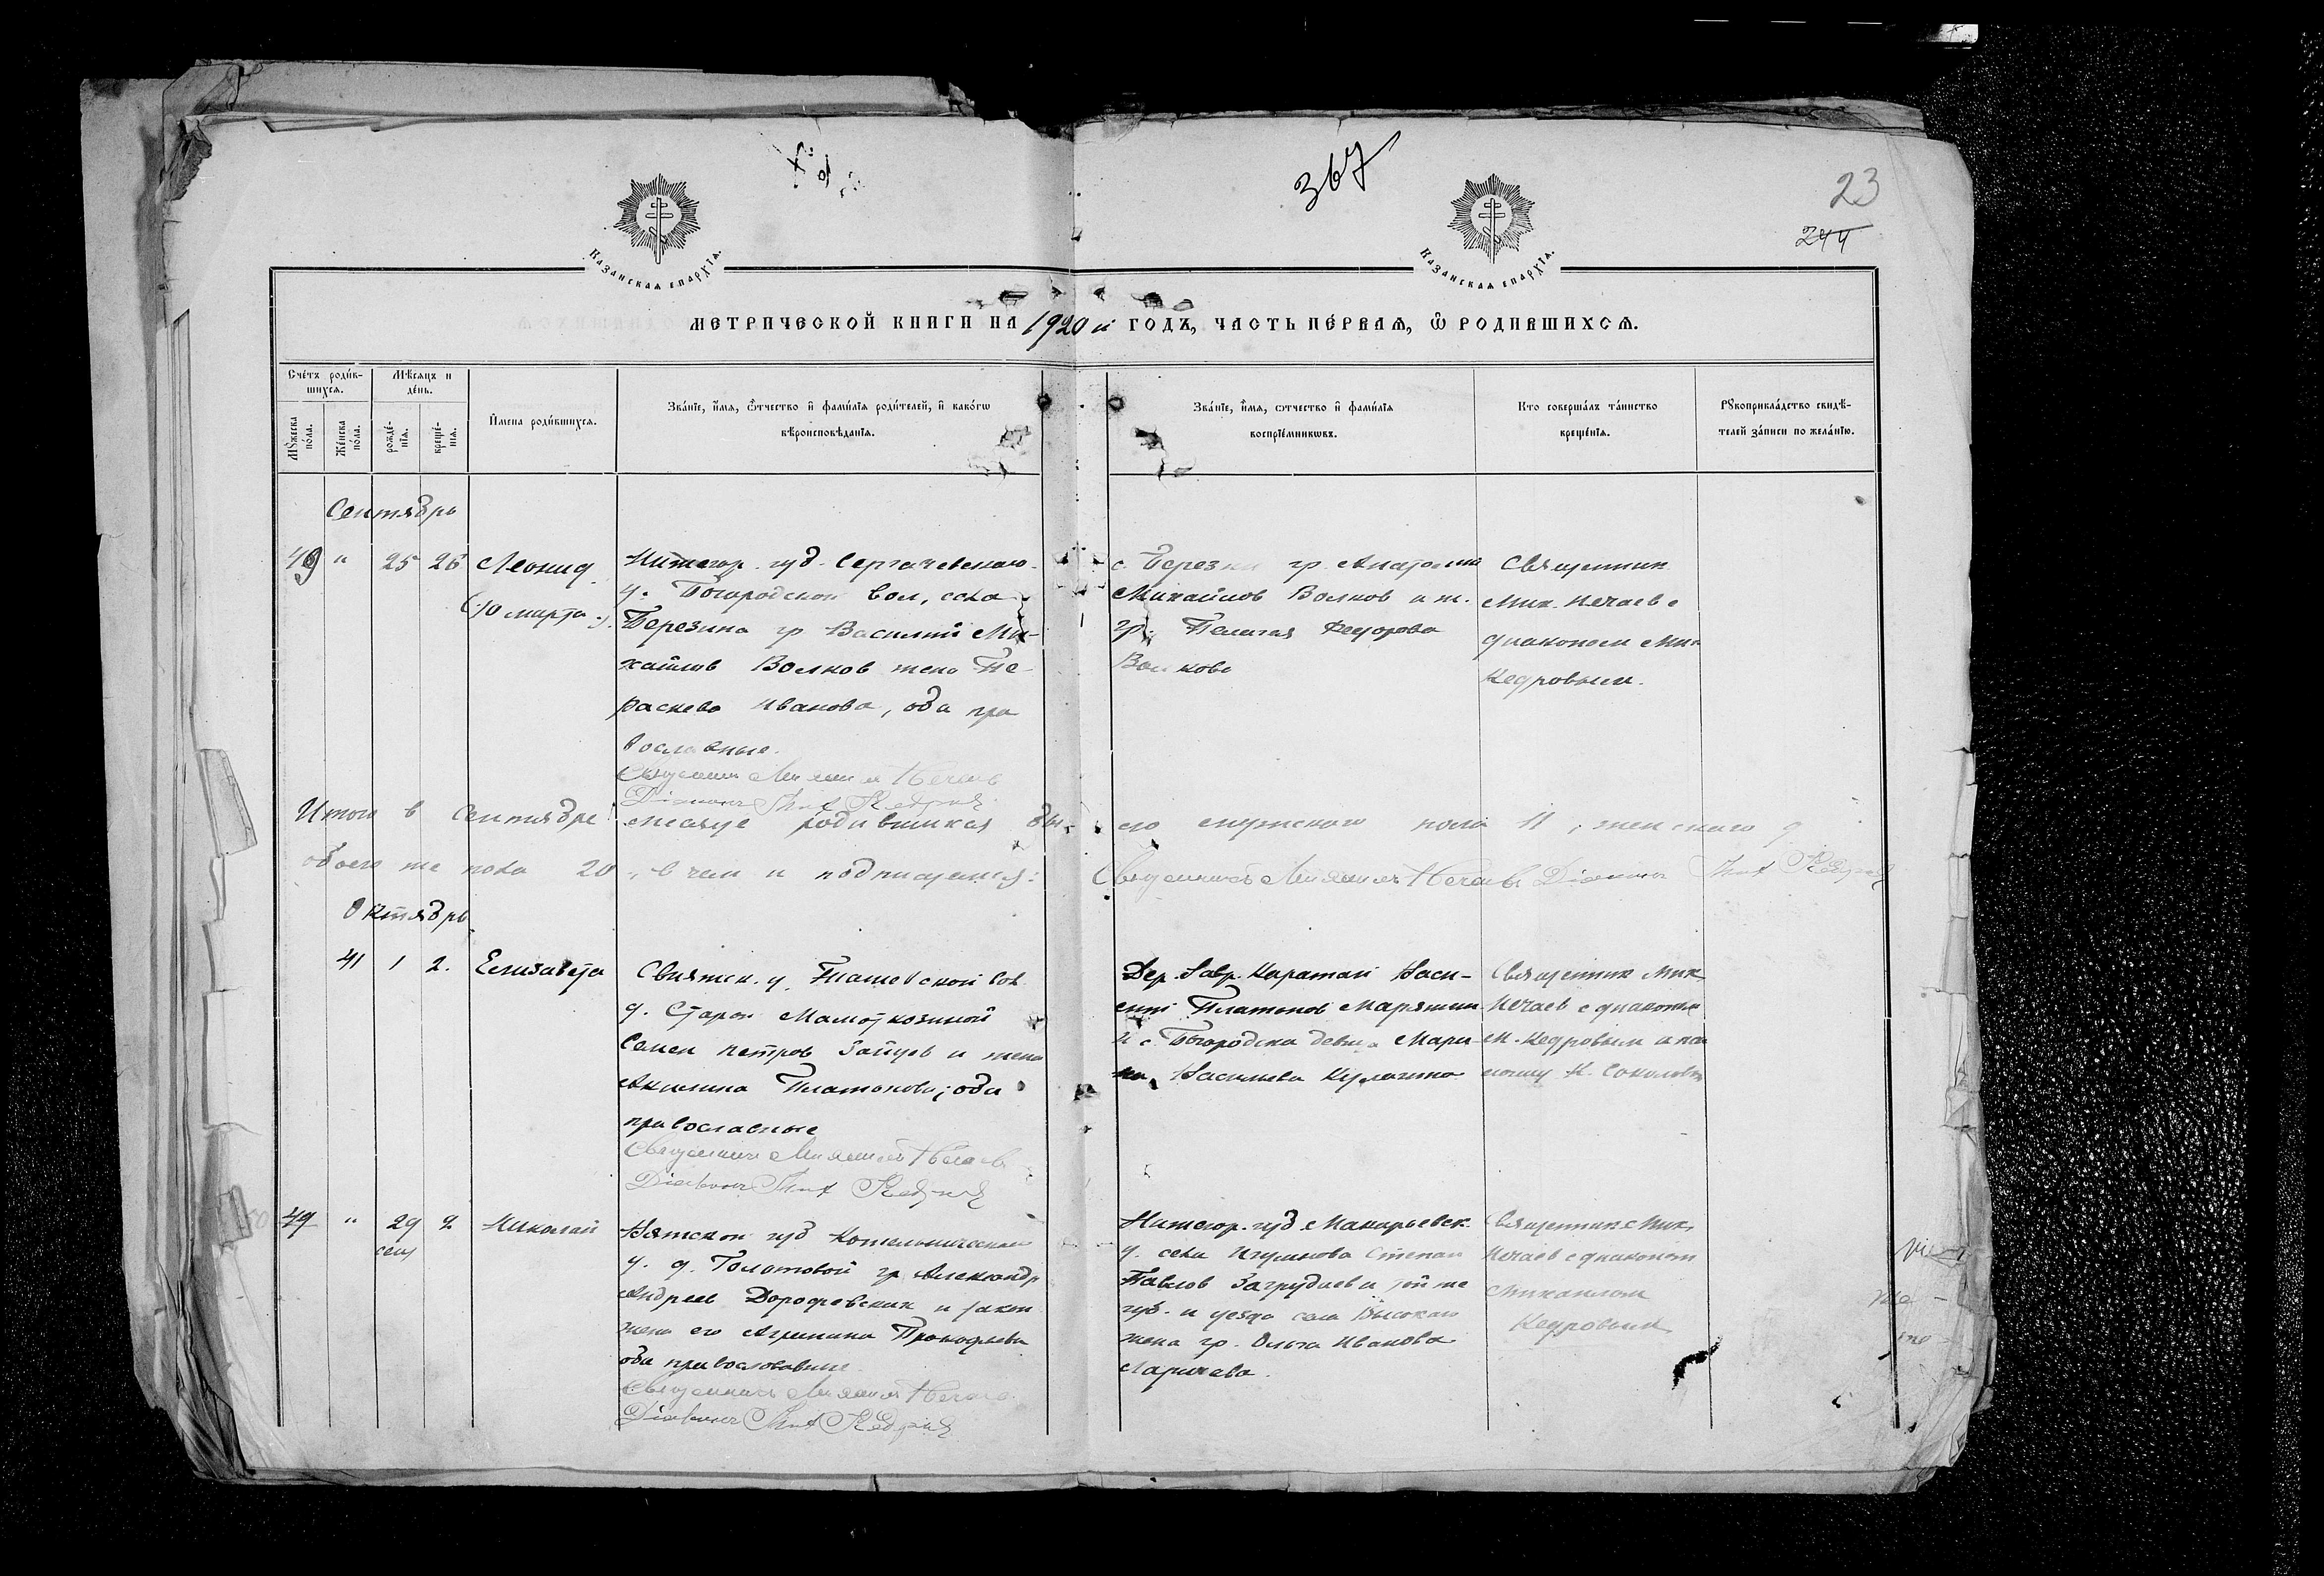 367
23
244
Казанская епархїя.
Казанская епархїя.
Метрической книги на 1920 й годъ, часть пе́рвая, ѡ родившихся.
Сче́тъ роди́вшихся.
Мѣсяцъ и де́нь.
Мꙋ́жеска по́ла.
Же́нска по́ла.
рожде́нїя.
креще́нїя.
И҆мена роди́вшихся.
Зва́нїе, и҆́мя, ѻ҆́тчество и҆ фами́лїя роди́телей, и҆ како́гѡ
вѣроисповѣ́данїя.
Зва́нїе, и҆́мя, ѻтчество и҆ фами́лїя
воспрїе́мникѡвъ.
Кто соверша́лъ та́инство
креще́нїя.
Рꙋкоприкла́дство свидѣ́-
телей за́писи по жела́нїю.
Сентябрь
49 " 25 26 Леонид
(10 марта).
Нижегор. губ. Сергачевскаго
у. Богородской вол, села
Березина гр Василий Ми-
хайлов Волков жена Па-
раскева Иванова, оба пра
вославные.
Священник Михаил Нечаев
Диакон Мих Кедров
с. Березин гр. Анатолий
Михайлов Волков и ж.
гр. Пелагея Федорова
Волкова
Священник
Мих. Нечаев с
диаконом Мих
Кедровым.
Итого в Сентябре месяце родившихся бы- ло мужского пола 11, женского 9
обоего же пола 20, в чем и подписуемся: Священникъ Михаилъ Нечаевъ Диакон Мих Кедров
Октябрь
41 1 2. Елизавета
Свияжск. у. Ташевской вол
д. Старой Мамоткозиной
Семен Петров Зайцев и жена
Акилина Платонова; оба
православные
Священник Михаил Нечаев
Диакон Мих Кедров
Дер. Лавр. Каратай Васи-
лий Платонов Маряшин
и с. Богородска девица Мари-
на Васильева Кулагина
Священник Мих
Нечаев с диаконом
М. Кедровым и пса
ломщ К. Соколов
49 " 29 2 Николай
сент
Вятской губ Котельническаго
у. д. Голатовой гр Александр
Андреев Дорофевских и закон
жена его Агрипина Прокофьева
оба православные
Священникъ Михаил Нечаев
Диакон Мих Кедров
Нижегор. губ. Макарьевск.
у. села Игумнова Степан
Павлов Загрудаев и той же
губ. и уезда села Высокаго
жена гр. Ольга Иванова
Ларичева.
Священник Мих.
Нечаев с диаконом
Михаилом
Кедровым